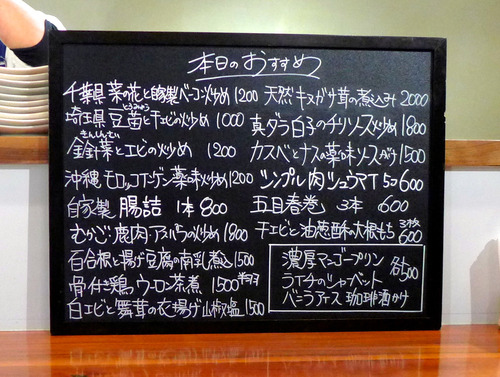 本日のおすすめ
千葉県 菜の花と自家製ベーコン炒め 1200
埼玉県 豆苗と干エビの炒め 1000
とうみょう
金針菜とエビの炒め 1200
きんしんさい
沖縄 モロッコインゲン薬味炒め 1200
自家製 腸詰 1本 800
むかご・鹿肉・アスパラの炒め 1800
百合根と揚げ豆腐の南乳煮込 1500
骨付き鶏 ウーロン茶煮 1500
白エビと舞茸の衣揚げ 山椒塩 1500
天然 キヌガサ茸の煮込み 2000
真ダラ白子のチリソース炒め 1800
カスベとナスの薬味ソースがけ 1500
シンプル肉シュウマイ 5コ 600
五目春巻 3本 600
干エビと油葱酥の大根もち 3枚 600
濃厚マンゴープリン
ライチのシャーベット
バニラアイス 珈琲酒かけ
各500